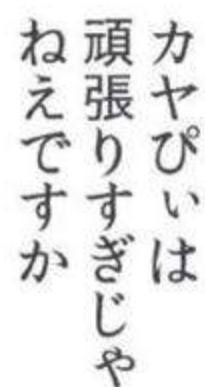 カヤぴぃは
頑張りすぎじゃ
ねえですか